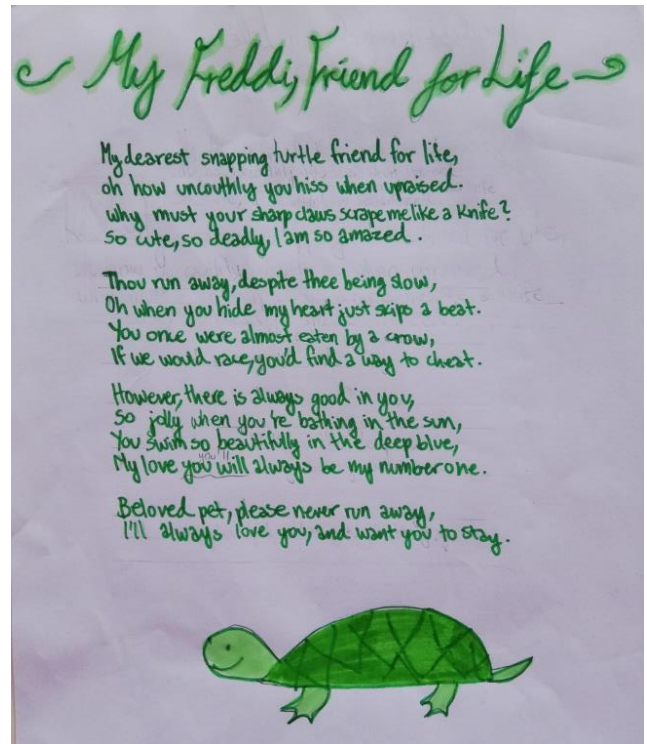 My Freddi, Friend for Life
My dearest snapping turtle friend for life,
oh how uncouthly you hiss when upraised.
why must your sharp claws scrape me like a knife?
So cute, so deadly, I am so amazed.
Thou run away, despite thee being slow,
Oh when you hide my heart just skips a beat.
You once were almost eaten by a crow,
If we would race, you'd find a way to cheat.
However, there is always good in you,
So jolly when you're bathing in the sun,
You swim so beautifully in the deep blue,
you'll
My love you will always be my number one.
Beloved pet, please never run away,
I'll always love you, and want you to stay.